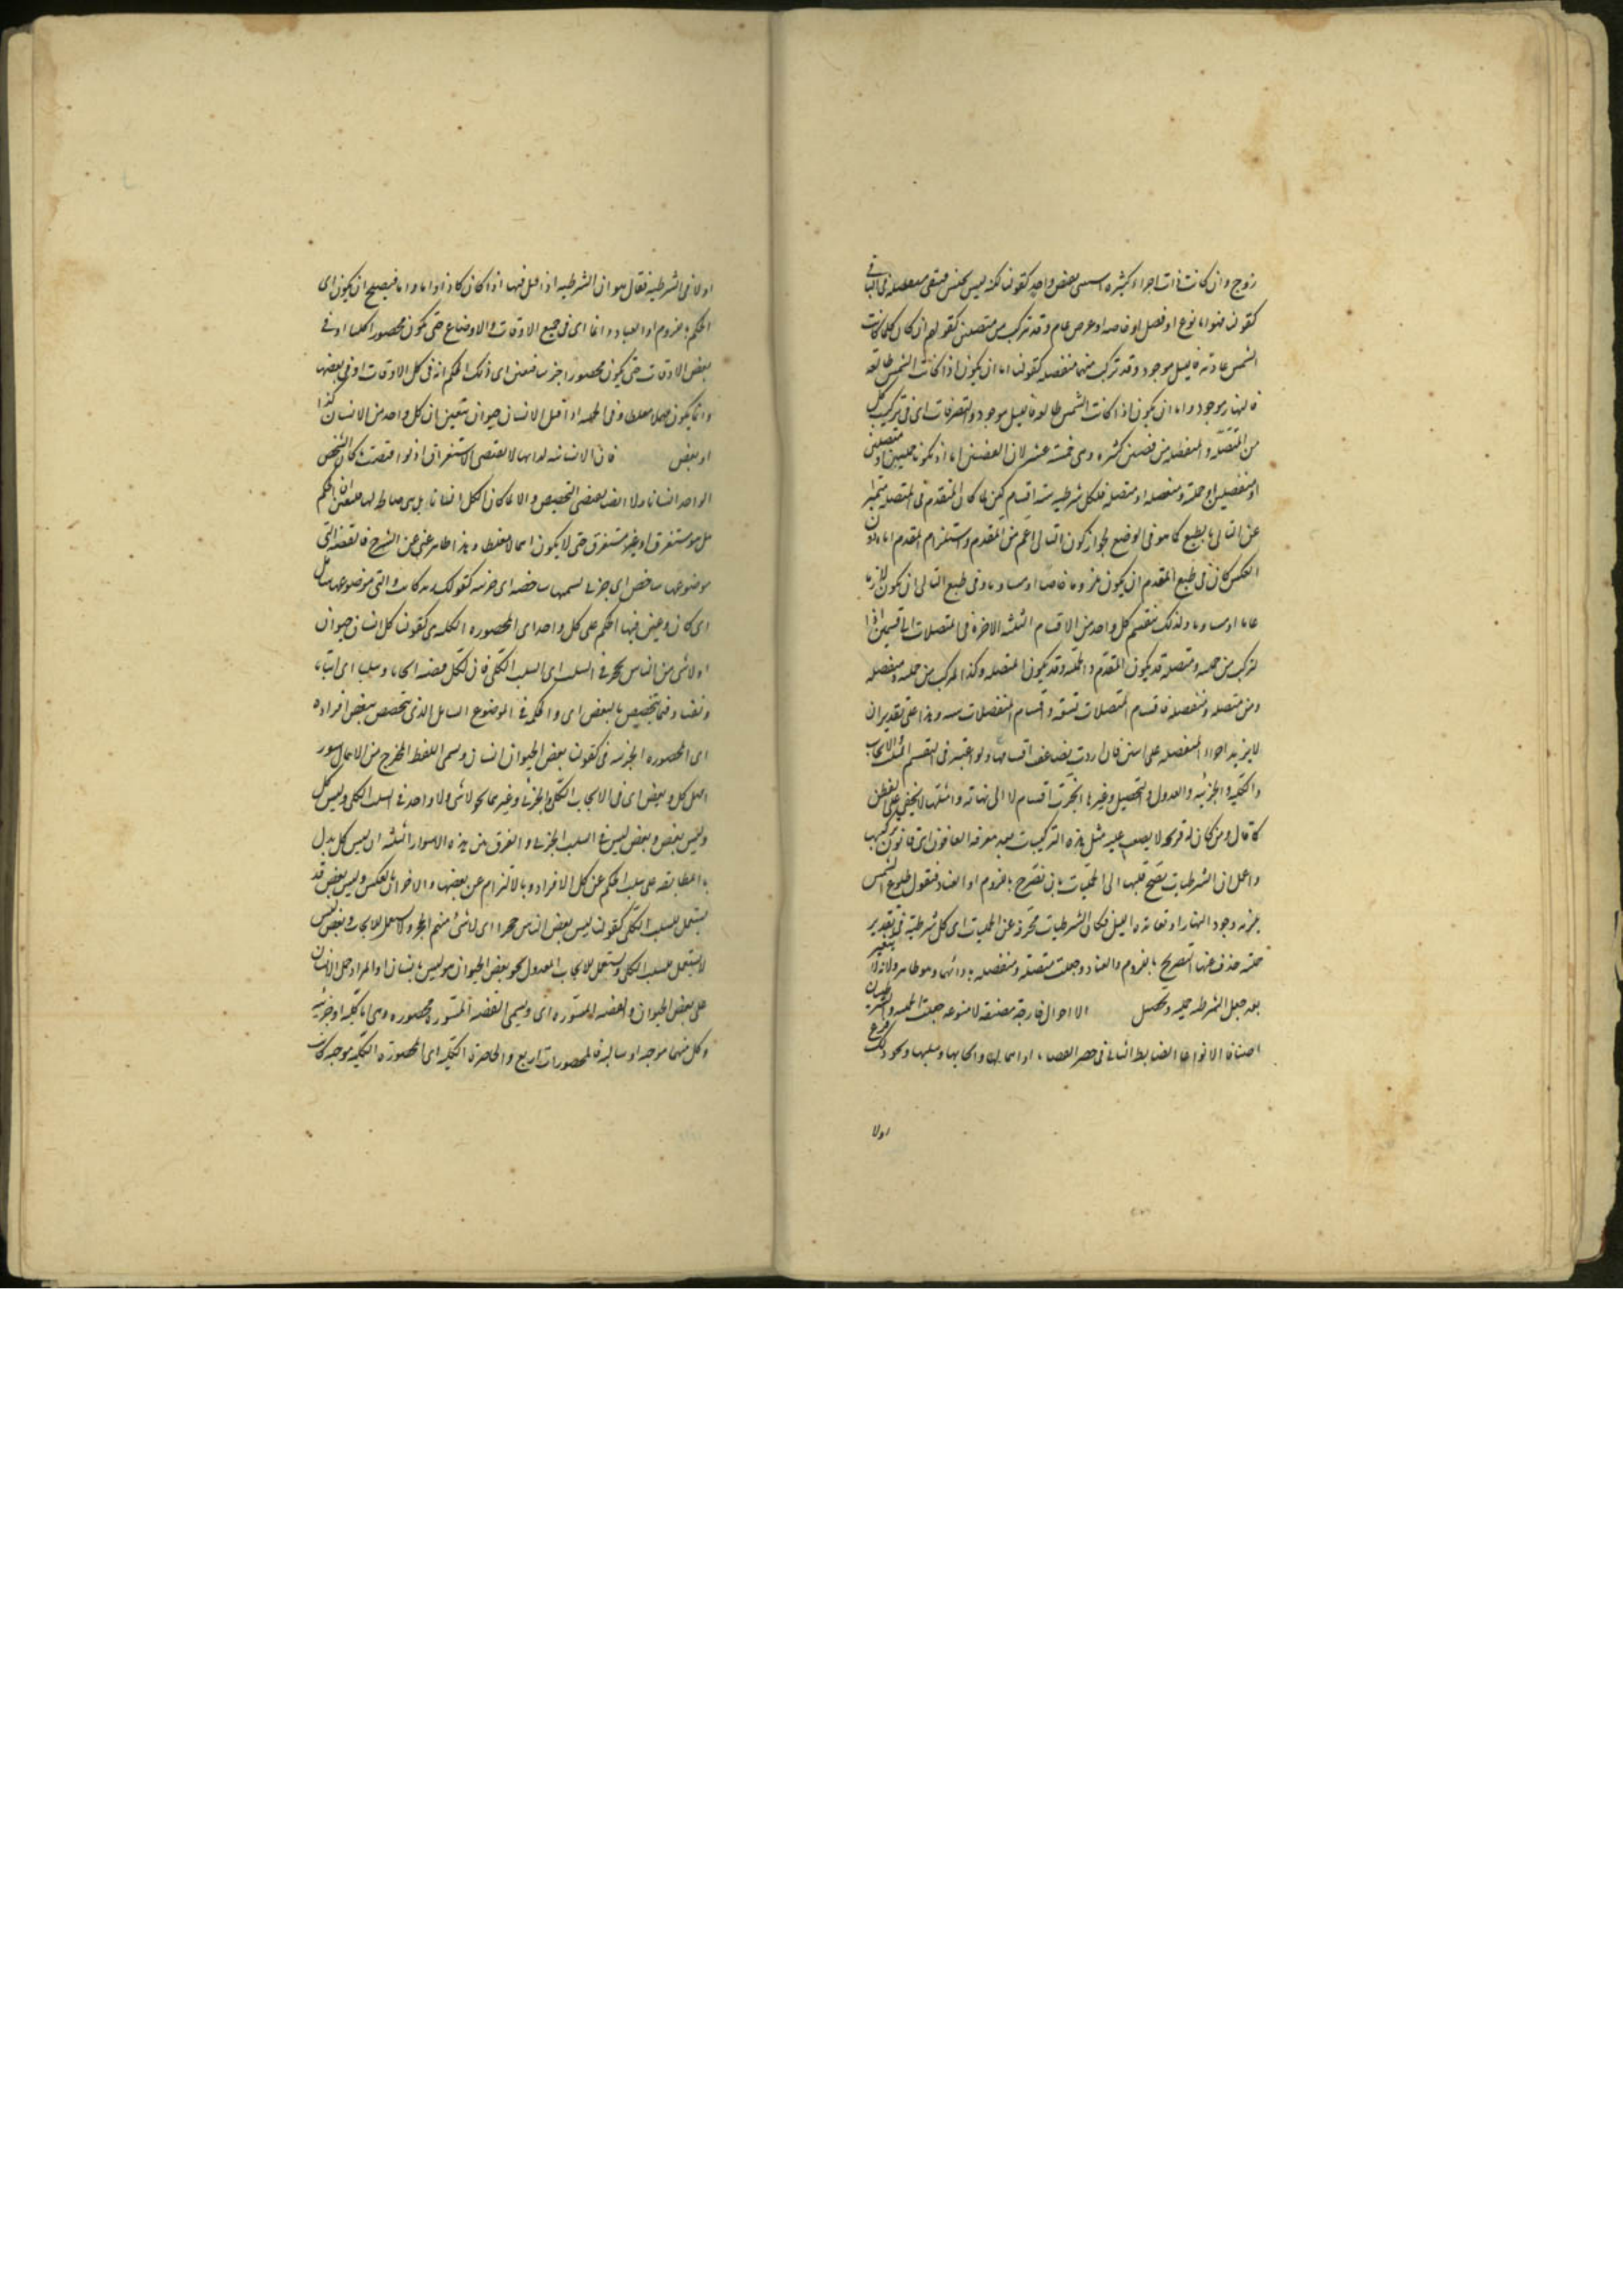 زوج وان كانت ذات اجزاء كثيرة استثنى نقيض واحد كقولنا لكنه ليس بجنس فتبقى منفصلة فى الباقى
كقولنا فهو اما نوع او فصل او خاصة او عرض عام وقد تركب من متصلتين كقولهم ان كان كلما كانت
الشمس فالليل موجود وقد تركب منهما منفصلة كقولنا اما ان يكون اذا كانت الشمس طالعة
فالنهار موجود واما ان يكون اذا كانت الشمس طالعة فالليل موجود والتصرفات اى فى تركيب كل
من المتصلة والمنفصلة من قضيتين كثيرة وهى خمسة عشر لان القضيتين اما ان تكونا حمليتين او متصلتين
او منفصلتين او حملية ومنفصلة او متصلة فلكل شرطية ستة اقسام لكن لما كان المقدم فى المتصلة متميزا
عن التالى بالطبع كما هو فى الوضع لجواز كون التالى اعم من المقدم واستلزام المقدم اياه دون
العكس كان فى طبع المقدم ان يكون ملزوما خاصا او مساويا وفى طبع التالى ان يكون لازما
عاما او مساويا ولذلك ينقسم كل واحد من الاقسام الثلثة الاخيرة فى المتصلات الى قسمين اذا
لتركب من حملية ومتصلة قد يكون المقدم الحملية وقد يكون المتصلة وكذا المركب من حملية ومنفصلة
ومن متصلة ومنفصلة فاقسام المتصلات تسعة واقسام المنفصلات ستة وهذا على تقدير ان
لا يزيد اجزاء المنفصلة على اثنين فان اردت يضاعف اقسامها ولو اعتبر فى التقسيم الثلث الايجاب
والكلية والجزئية والعدول والتحصيل وغيرها انجرت اقسام لا الى نهاية وامثلتها لا يخفى على الفطن
كما قال ومن كان له قريحة لا يصعب عليه مثل هذه التركيبات بعد معرفة القانون اى قانون تركيبها
واعلم ان الشرطيات يصح قلبها الى الحمليات بان نصرح باللزوم او العناد فنقول طلوع الشمس
يلزمه وجود النهار او يعانده الليل فكان الشرطيات محرفة عن الحمليات اى كل شرطية فى تقدير
حملية حذف عنها التصريح باللزوم والعناد وجعلت متصلة ومنفصلة
بعد جعل الشرطية حملية وتحصل الا احوال خارجة مصنفة لا منوعة جعلت الحملية والشرطية
اصنافا لا انواعا الضابط الثانى فى حصر القضايا واهمالها وايجابها وسلبها ونحو ذلك
اولا
اولا فى الشرطية فقال هو ان الشرطية اذا قيل فيها اذا كان كان او اما واما فيصلح ان يكون اى
الحكم باللزوم او العناد دائما اى فى جميع الاوقات والاوضاع حتى يكون محصورا كليا او فى
بعض الاوقات حتى يكون محصورا جزئيا فيتعين اى ذلك الحكم انه فى كل الاوقات او فى بعضها
وانما يكون مهملا مغلطا وفى الحملية اذا قيل الانسان حيوان يتعين ان كل واحد من الانسان كذا
او بعض فان الانسانية لذاتها لا يقتضى الاستغراق اذ لو اقتضت ما كان الشخص
الواحد انسانا ولا ايضا يقتضى التخصيص والا ما كان الكل انسانا بل هى صالحة لهما فليعين ان الحكم
هل هو مستغرق او غير مستغرق حتى لا يكون اهمالا مغلطا وهذا ظاهر غنى عن الشرح فالقضية التى
موضوعها شاخص اى جزئى نسميها شاخصة اى جزئية كقولك زيد كاتب والتى موضوعها شامل
اى كلى وعين فيها الحكم على كل واحد اى المحصورة الكلية هى كقولنا كل انسان حيوان
او لا شئ من الناس بحجر فى السلب اى السلب الكلى فان لكل قضية ايجابا وسلبا اى اثباتا
ونفيا وفيما تخصيص بالبعض اى والحكم فى الموضوع الشامل الذى يتخصص ببعض افراده
اى المحصورة الجزئية هى كقولنا بعض الحيوان انسان وسمى اللفظ المخرج من الاهمال سور
مثل كل وبعض اى فى الايجاب الكلى والجزئى وغيرهما نحو لا شئ ولا واحد فى السلب الكلى وليس كل
وليس بعض وبعض ليس فى السلب الجزئى والفرق بين هذه الاسوار الثلثة ان ليس كل يدل
بالمطابقة على سلب الحكم عن كل الافراد وبالالتزام عن بعضها والاخران بالعكس وليس بعض قد
يستعمل للسلب الكلى كقولنا ليس بعض الناس حجرا اى لا شئ منهم بحجر ولا يستعمل للايجاب وبعض ليس
لا يستعمل للسلب الكلى ويستعمل للايجاب المعدول نحو بعض الحيوان هو ليس بانسان اذا المراد حمل اللا انسان
على بعض الحيوان والقضية المسورة اى ويسمى القضية المسورة محصورة وهى اما كلية او جزئية
وكل منهما موجبة او سالبة فالمحصورات اربع والحاصرة الكلية اى المحصورة الكلية موجبة كانت